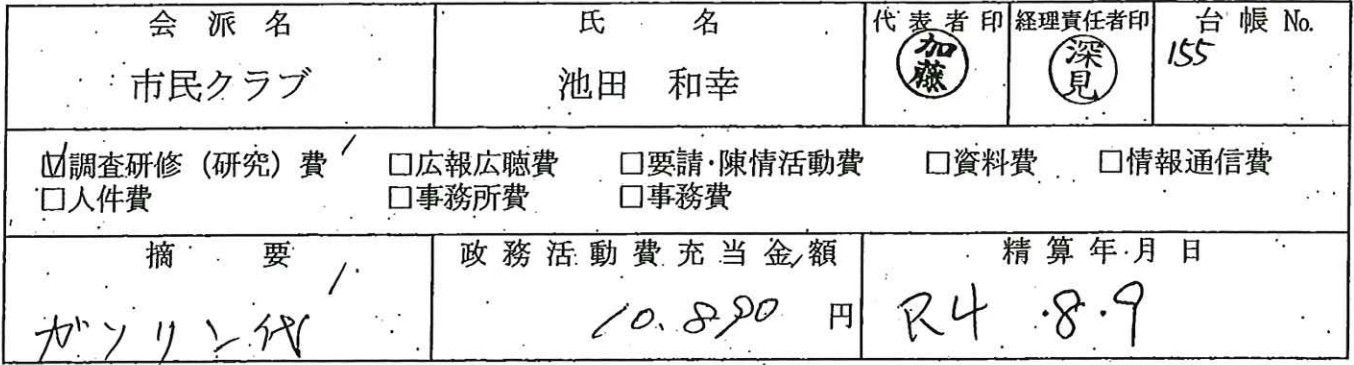 会派名 氏名 代表者印 経理責任者印 台帳 No.
市民クラブ 池田 和幸 加藤 深見 155
☑調査研修（研究）費 □広報広聴費 □要請・陳情活動費 □資料費 □情報通信費
□人件費 □事務所費 □事務費
摘要 政務活動費充当金額 精算年月日
ガソリン代 10.890 円 R4.8.9